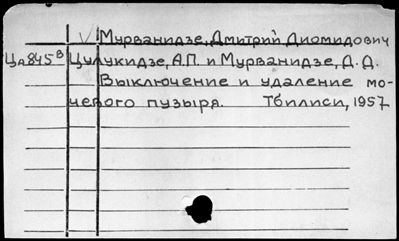 V Мурванидзе, Дмитрий Диомидович
Ца845в Цулукидзе, А.П. и Мурванидзе, Д.Д.
Выключение и удаление мо-
чевого пузыря. Тбилиси, 1957